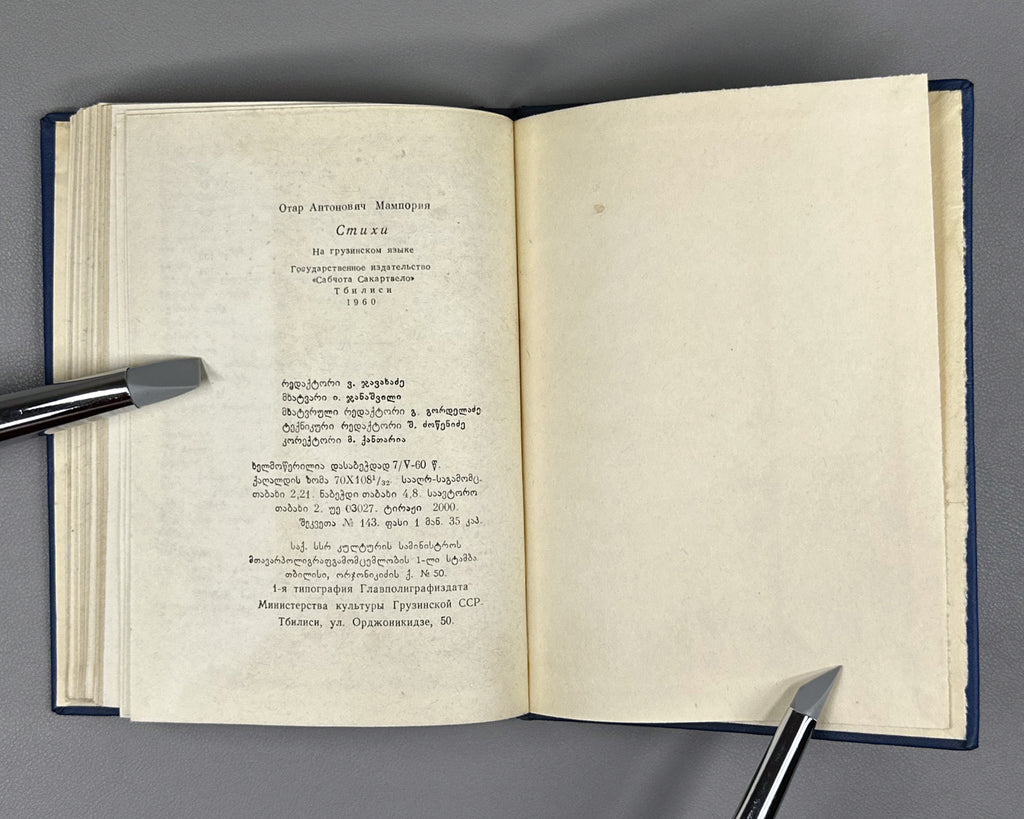 Отар Антонович Мампория
Стихи
На грузинском языке
Государственное издательство
«Сабчота Сакартвело»
Тбилиси
1960
რედაქტორი ვ. ჯავახაძე
მხატვარი ი. ჯანაშვილი
მხატვრული რედაქტორი გ. გორდელაძე
ტექნიკური რედაქტორი შ. ძოწენიძე
კორექტორი მ. ქანთარია
ხელმოწერილია დასაბეჭდად 7/V-60 წ.
ქაღალდის ზომა 70X108¹/₃₂. სააღრ-საგამომც.
თაბახი 2,21. ნაბეჭდი თაბახი 4,8. საავტორო
თაბახი 2. უე 03027. ტირაჟი 2000.
შეკვეთა № 143. ფასი 1 მან. 35 კაპ.
საქ. სსრ კულტურის სამინისტროს
მთავარპოლიგრაფგამომცემლობის 1-ლი სტამბა
თბილისი, ორჯონიკიძის ქ. № 50.
1-я типография Главполиграфиздата
Министерства культуры Грузинской ССР
Тбилиси, ул. Орджоникидзе, 50.